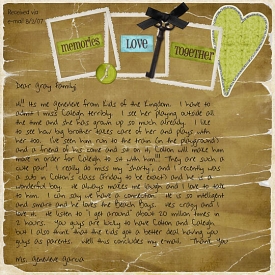 Received via
e-mail 8/2/07
memories
LOVE
TOGETHER
Dear Gray Family,
Hi!! Its me Genevieve from Kids of the Kingdom. I have to
admit I miss Caleigh terribly. I see her playing outside all
the time and she has grown up so much already. I like
to see how big brother takes care of her and plays with
her too. I've seen him run to the train (in the playground)
and a friend of his come and sit on it, Colton will make him
move in order for Caleigh to sit with him!!! They are such a
cute pair! I really do miss my "shorty", and I recently was
a sub in Colton's class (Friday to be exact) and he is a
wonderful boy. He always makes me laugh and I love to talk
to him. I can say we have a connection. He is so intelligent
and smart and he loves the Beach Boys. Its crazy and I
love it. He listen to I get around about 20 million times in
2 hours. You guys are lucky to have Colton and Caleigh
but I also think that the kids got a better deal having you
guys as parents. Well this concludes my email. Thank You
Ms. Genevieve Garcia